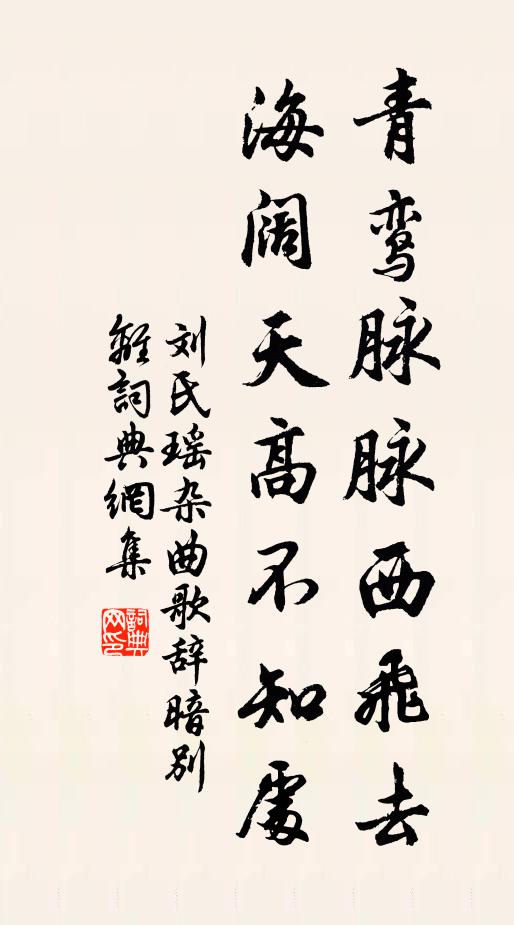 青鸾脉脉西飞去
海阔天高不知處
刘氏瑶杂曲歌辞暗别
雜詞典網集
詞典网印